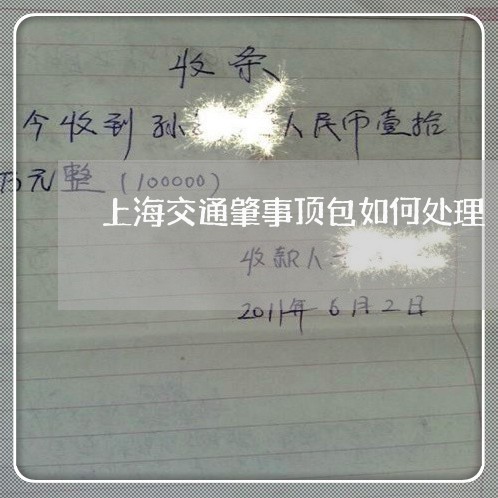 收条
今收到孙 人民币壹拾
万元整(100000)
上海交通肇事顶包如何处理
收款人
2011年6月2日